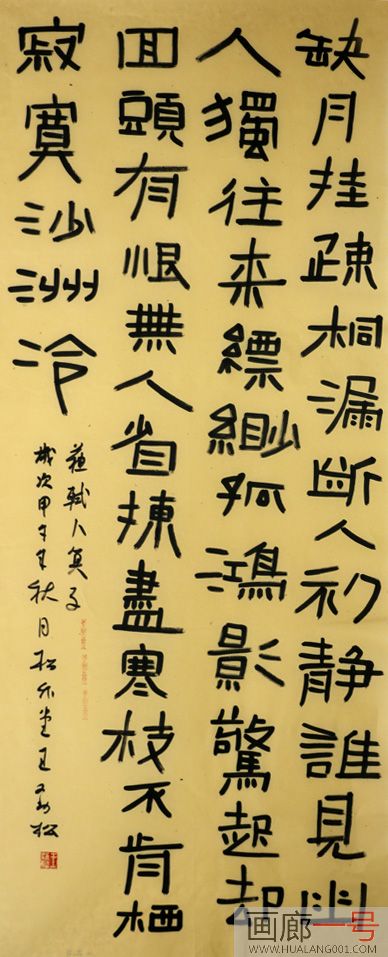 缺月挂疎桐漏斷人初静誰見幽
人獨往来縹緲孤鴻影驚起却
回頭有恨無人省揀盡寒枝不肯栖
寂寞沙洲冷
蘇軾卜算子
歲次甲午年秋月松堂王松
画廊一号
WWW.HUALANG001.COM